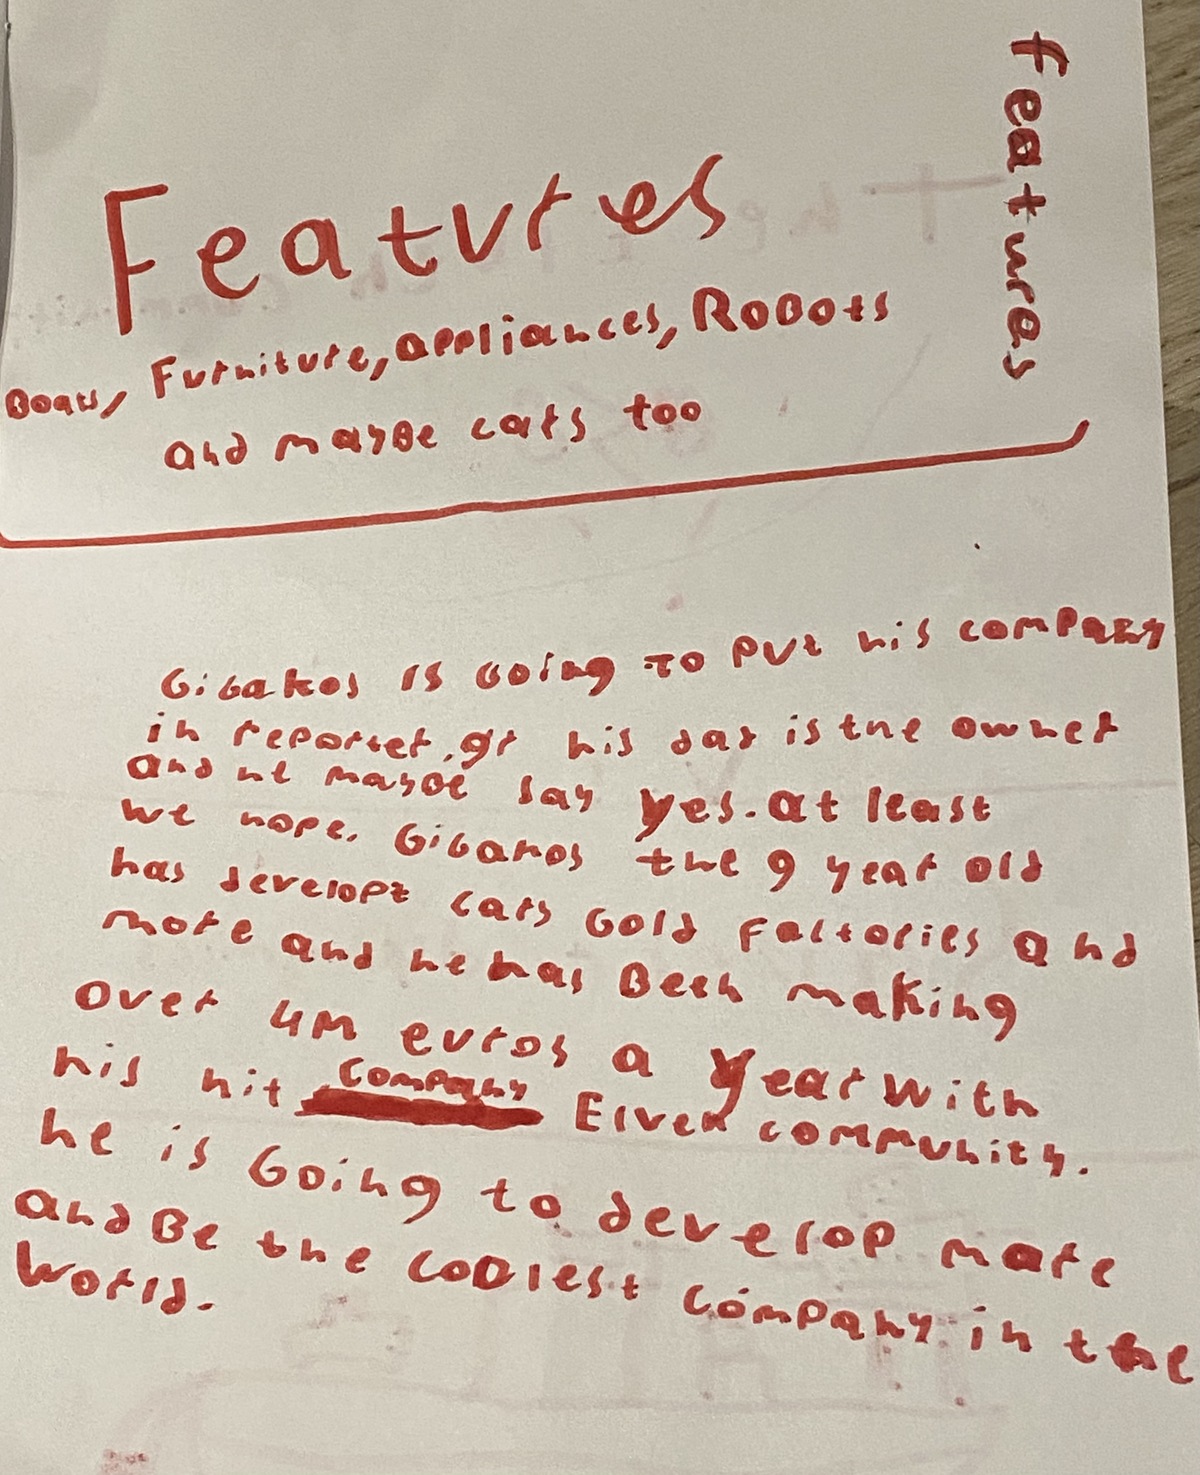 Features
Features
Boats, Furniture, appliances, Robots
and maybe cars too
Gigakos is Going to put his company
in reporter.gr his dad is the owner
and he maybe say yes. at least
we hope. Gigakos the 9 year old
has developt cars Gold Factories and
more and he has Been making
over 4M euros a year with
his hit company Elven community.
he is Going to develop more
and Be the coolest company in the
world.